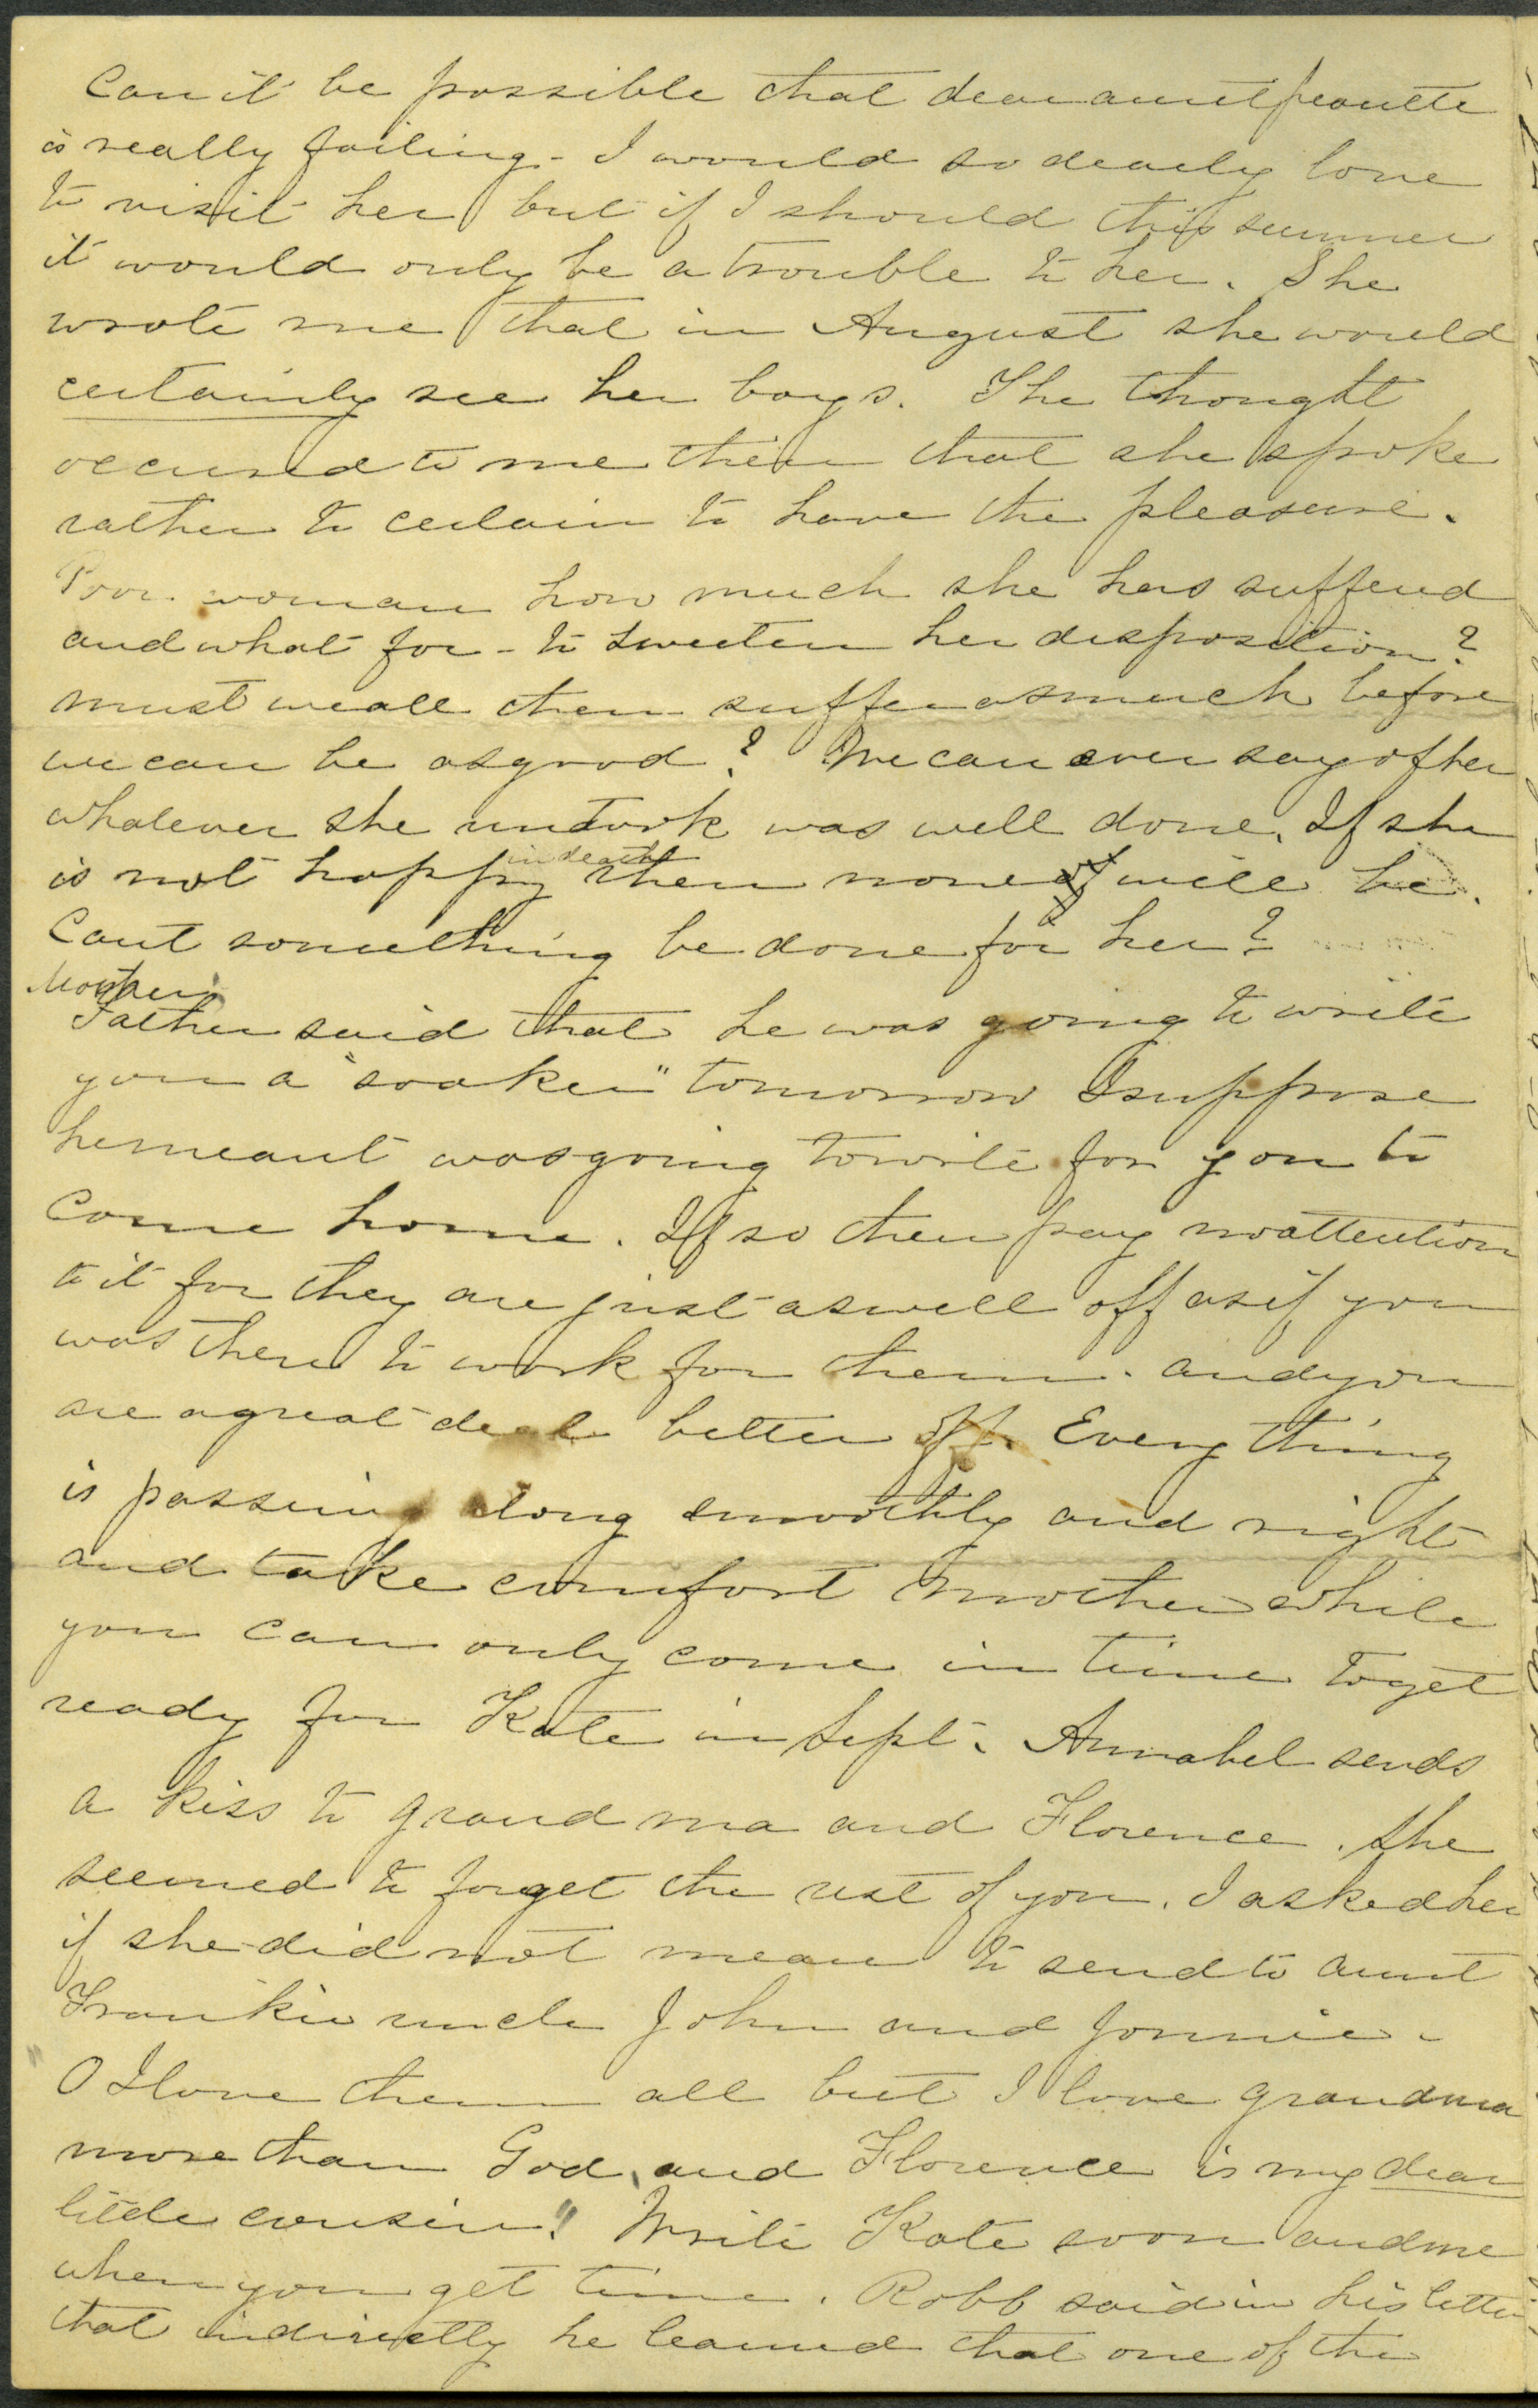 Can it be possible that dear aunt
is really failing - I would so dearly love
to visit her but if I should this summer
it would only be a trouble to her. She
wrote me that in August she would
certainly see her boys. The thought
occured to me then that she spoke
rather to certain to have the pleasure.
Poor woman how much she has sufferd
and what for - to sweeten her disposition?
must we all then suffer as much before
we can be as good? We can ever say of her
whatever she undertook was well done. If she
is not happy in death then none of will be.
Cant something be done for her?
Mother
Father said that he was going to write
you a "soaker" tomorrow I suppose
he meant was going to write for you to
come home. If so then pay no attention
to it for they are just as well off as if you
was there to work for them. and you
are a great deal better off. Every thing
is passing along smoothly and right
and take comfort Mother while
you can only come in time to get
ready for Kate in Sept. Annabel sends
a kiss to grand ma and Florence. She
seemed to forget the rest of you. I asked her
if she did not mean to send to aunt
Frankie uncle John and Jonnie.
"O I love them all but I love grandma
more than God, and Florence is my dear
little cousin." Write Kate soon and me
when you get time. Robb said in his letter
that indirectly he learned that one of the